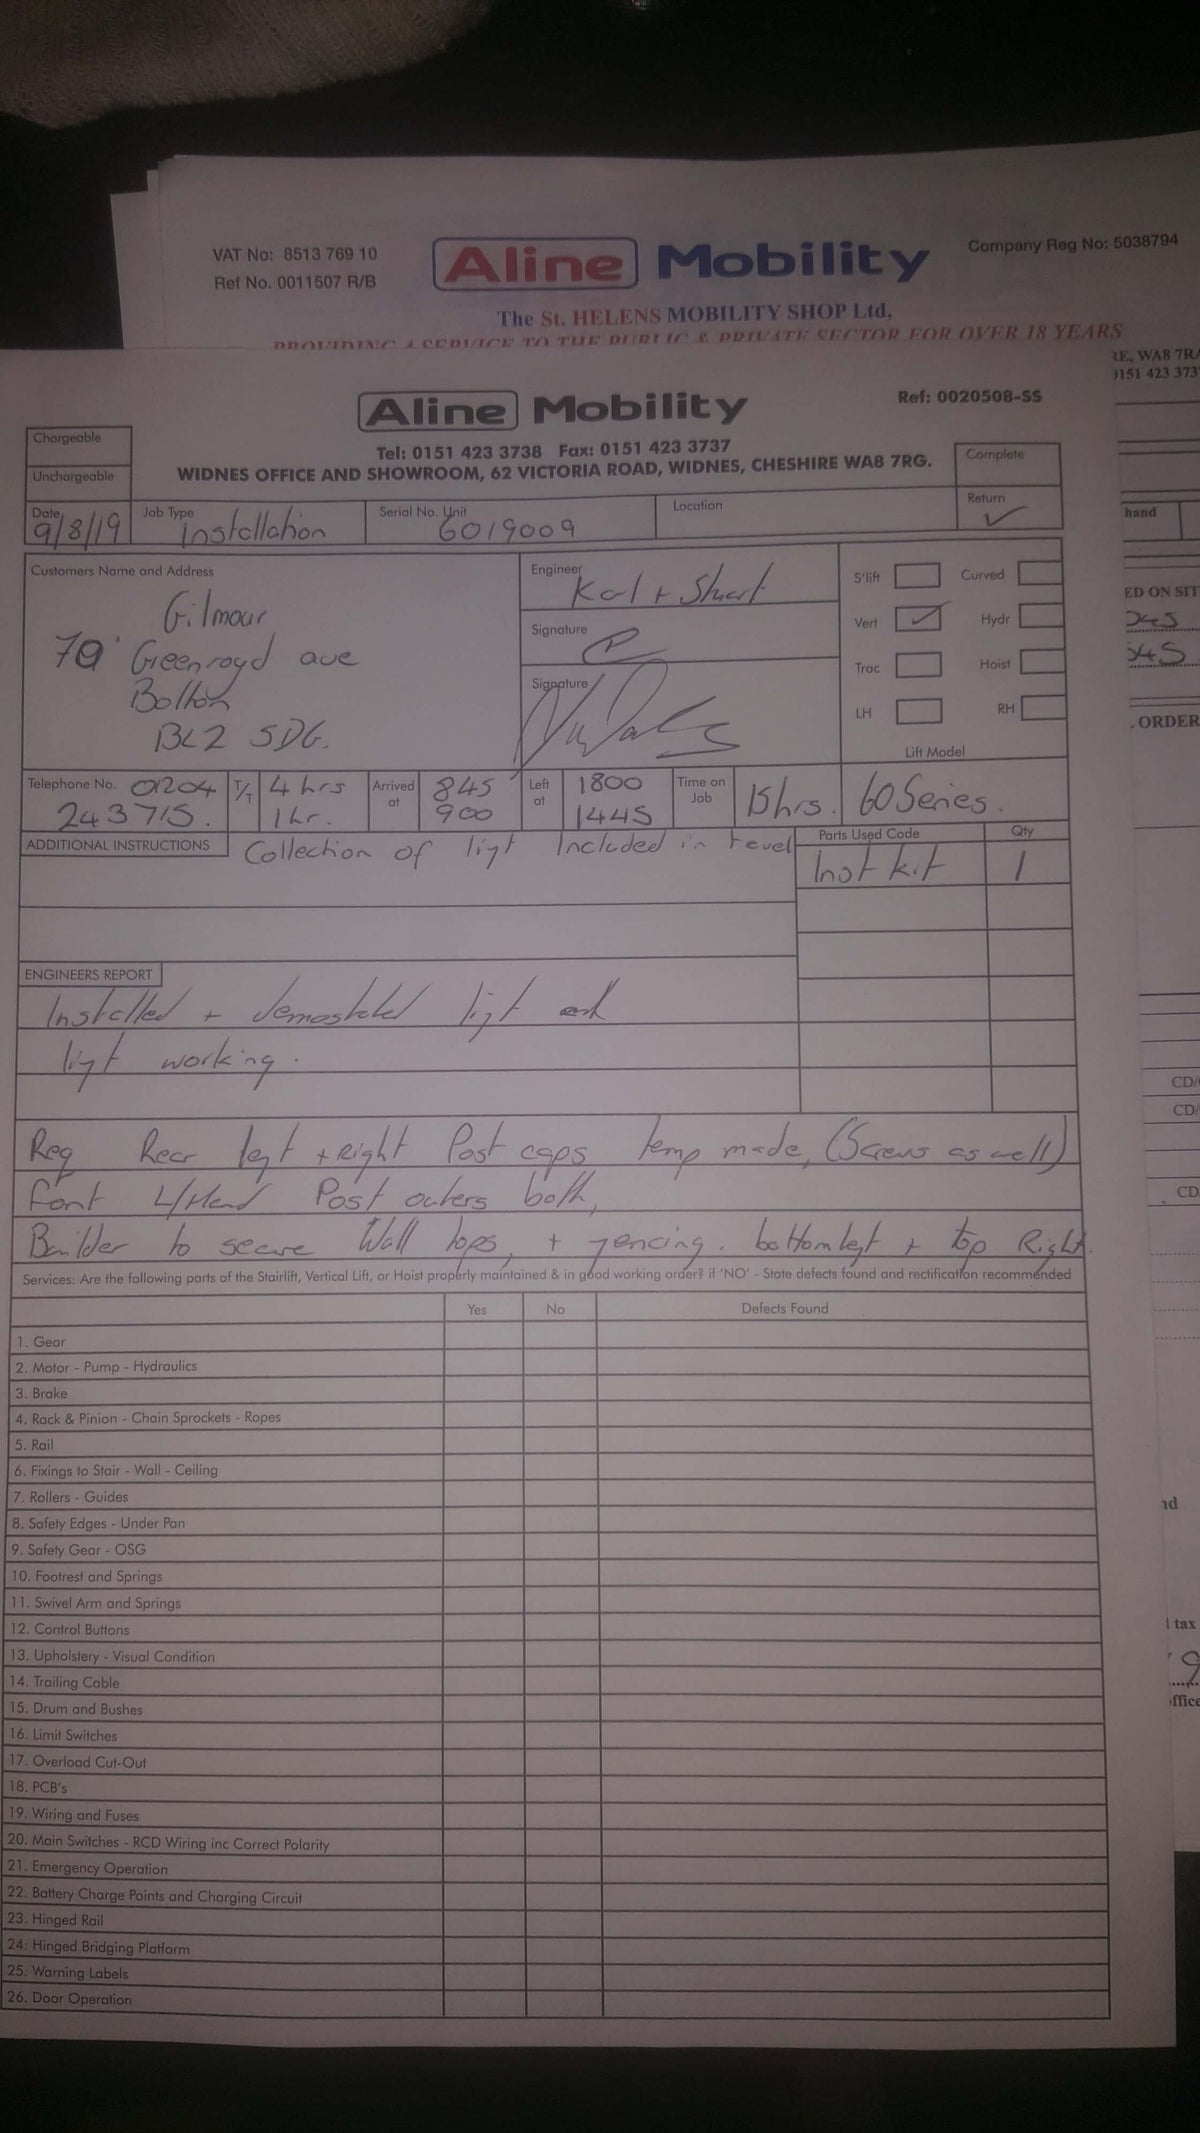 VAT No: 8513 769 10
Ref No. 0011507 R/B
Aline Mobility
Company Reg No: 5038794
The St. HELENS MOBILITY SHOP Ltd,
PROVIDING A SERVICE TO THE PUBLIC & PRIVATE SECTOR FOR OVER 18 YEARS
RE, WA8 7RA
0151 423 373
Aline Mobility
Ref: 0020508-SS
Chargeable
Unchargeable
Tel: 0151 423 3738 Fax: 0151 423 3737
WIDNES OFFICE AND SHOWROOM, 62 VICTORIA ROAD, WIDNES, CHESHIRE WA8 7RG.
Complete
Return ✓
Date 9/8/19
Job Type Installation
Serial No. Unit 6019009
Location
hand
Customers Name and Address
Gilmour
79 Greenroyd ave
Bolton
BL2 5DG.
Engineer Karl + Stuart
Signature
Signature
S'lift
Curved
Vert ✓
Hydr
Trac
Hoist
LH
RH
Lift Model
60 Series.
ED ON SIT
. ORDER
Telephone No. 01204
243715.
T/T 4 hrs
1 hr.
Arrived at 845
900
Left at 1800
1445
Time on Job 15hrs.
ADDITIONAL INSTRUCTIONS Collection of lift Included in travel
Parts Used Code Qty
Inst kit 1
ENGINEERS REPORT
Installed + demostated lift and
lift working.
Req Rear left + Right Post caps temp made, (Screws as well)
font L/Hand Post outers both,
Builder to secure Wall tops, + fencing. bottom left + top Right.
Services: Are the following parts of the Stairlift, Vertical Lift, or Hoist properly maintained & in good working order? if 'NO' - State defects found and rectification recommended
Yes No Defects Found
1. Gear
2. Motor - Pump - Hydraulics
3. Brake
4. Rack & Pinion - Chain Sprockets - Ropes
5. Rail
6. Fixings to Stair - Wall - Ceiling
7. Rollers - Guides
8. Safety Edges - Under Pan
9. Safety Gear - OSG
10. Footrest and Springs
11. Swivel Arm and Springs
12. Control Buttons
13. Upholstery - Visual Condition
14. Trailing Cable
15. Drum and Bushes
16. Limit Switches
17. Overload Cut-Out
18. PCB's
19. Wiring and Fuses
20. Main Switches - RCD Wiring inc Correct Polarity
21. Emergency Operation
22. Battery Charge Points and Charging Circuit
23. Hinged Rail
24: Hinged Bridging Platform
25. Warning Labels
26. Door Operation
CD/
CD/
CD
nd
l tax
9
office